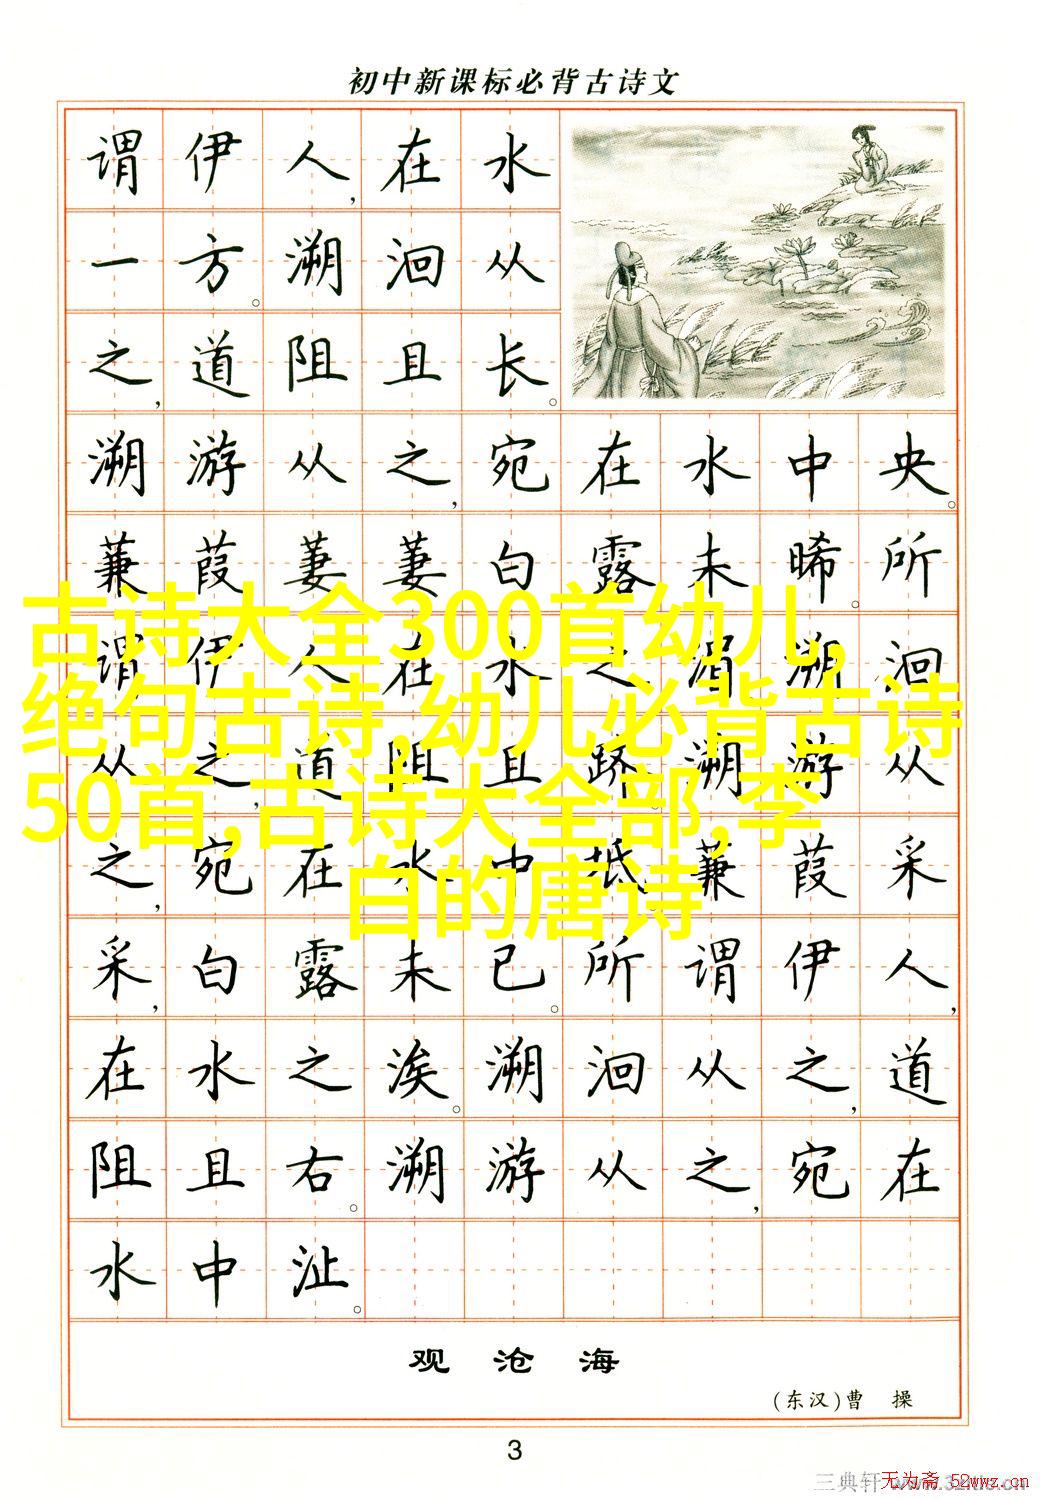 初中新课标必背古诗文
谓伊人,在水
一方。溯洄从
之,道阻且长。
溯游从之,宛在水中央。
蒹葭萋萋白露未晞。所
谓伊人在水之湄溯洄
从之,道阻且跻。溯游从
之,宛在水中坻。蒹葭采
采,白露未已。所谓伊人,
在水之涘。溯洄从之,道
阻且右。溯游从之,宛在
水中沚。
古诗大全300首幼儿,
绝句古诗,幼儿必背古诗
50首,古诗大全部,李
白的唐诗
观沧海
(东汉)曹 操
3
三典轩
无为斋 52wwz.cn